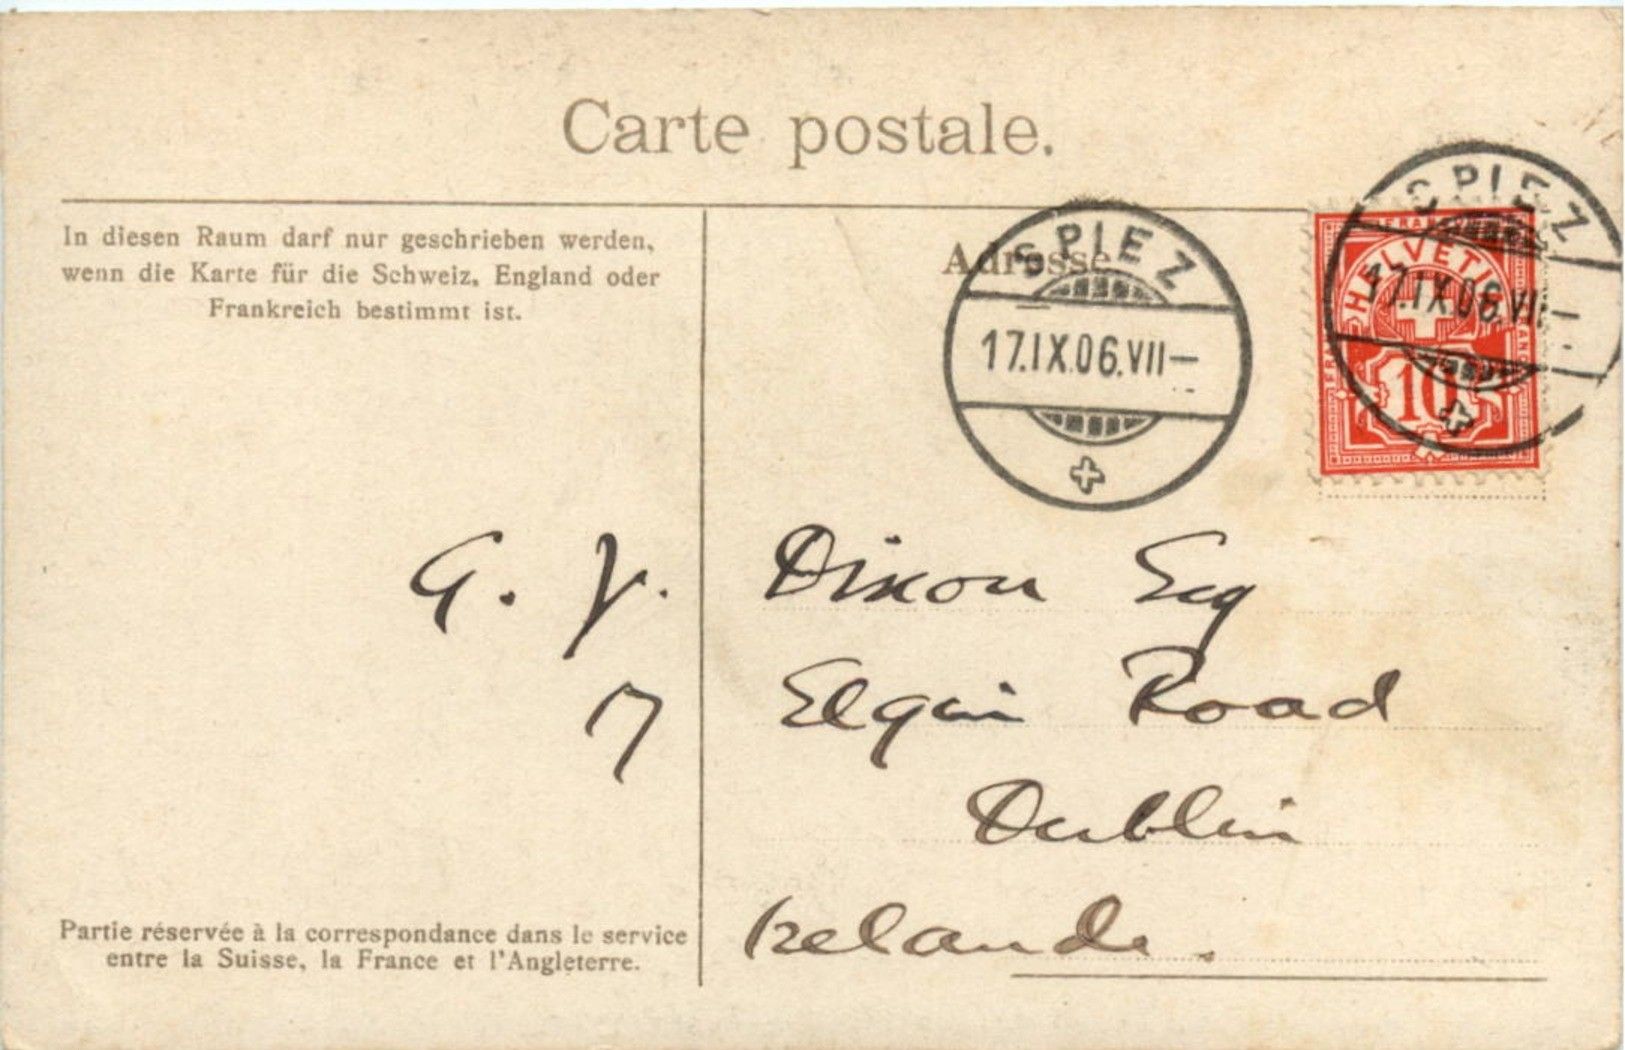 Carte postale.
In diesen Raum darf nur geschrieben werden,
wenn die Karte für die Schweiz, England oder
Frankreich bestimmt ist.
Adresse
SPIEZ
17.IX.06.VII—
SPIEZ
17.IX.06.VII—
HELVETIA
FRANCO
10
G. V. Dixon Esq
7 Elgin Road
Dublin
Irelande.
Partie réservée à la correspondance dans le service
entre la Suisse, la France et l'Angleterre.